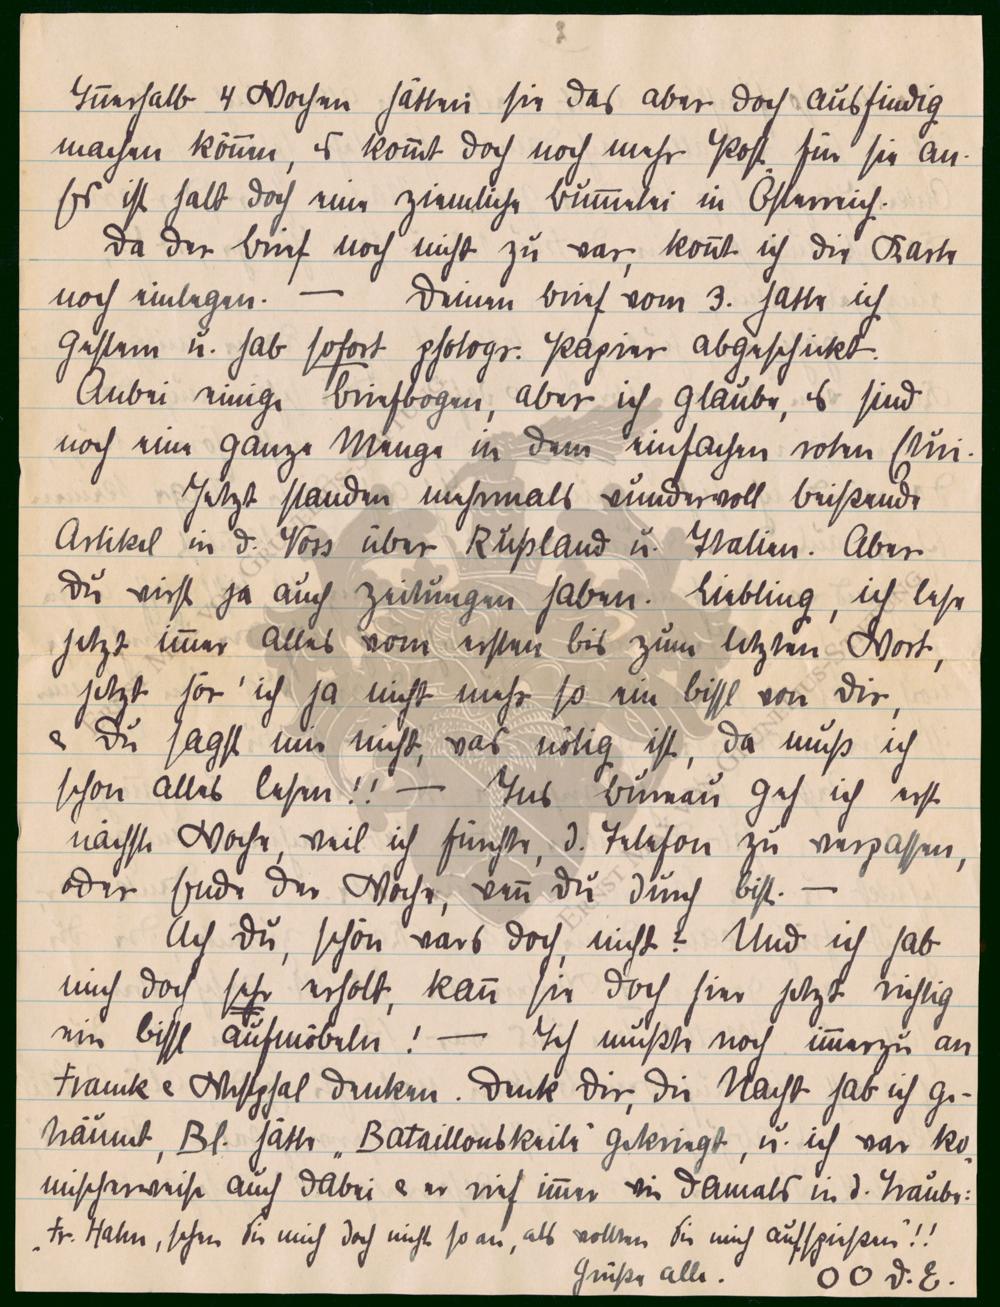 2
Innerhalb 4 Wochen hätten sie das aber doch ausfindig
machen können, es kom̅t doch noch mehr Post für sie an.
Es ist halt doch eine ziemliche Bum̅elei in Österreich.
Da der Brief noch nicht zu war, kon̅t ich die Karte
noch einlegen. — Deinen Brief vom 3. hatte ich
gestern u. hab sofort photogr. Papier abgeschickt.
Anbei einige Briefbogen, aber ich glaube, es sind
noch eine ganze Menge in dem einfachen roten Etui.
Jetzt standen mehrmals wundervoll beißende
Artikel in d. Voss über Rußland u. Italien. Aber
Du wirst ja auch Zeitungen haben. Liebling, ich lese
jetzt im̅er alles vom ersten bis zum letzten Wort,
jetzt hör' ich ja nicht mehr so ein bissl von Dir,
& Du sagst mir nicht, was nötig ist, da muß ich
schon alles lesen!! — Ins Bureau geh ich erst
nächste Woche, weil ich fürchte, d. Telefon zu verpassen,
oder Ende der Woche, wen̅ Du durch bist. —
Ach Du, schön wars doch, nicht? Und ich hab
mich doch sehr erholt, kan̅ sie doch hier jetzt richtig
ein bissl aufmöbeln! — Ich mußte noch im̅erzu an
Franck & Westphal denken. Denk Dir, die Nacht hab ich ge-
träumt, Bl. hätte „Bataillonskeile" gekriegt, u. ich war ko-
mischerweise auch dabei & er rief im̅er wie damals in d. Traube:
„Fr. Hahn, sehen Sie mich doch nicht so an, als wollten Sie mich aufspießen"!!
Grüße alle. OO D. E.